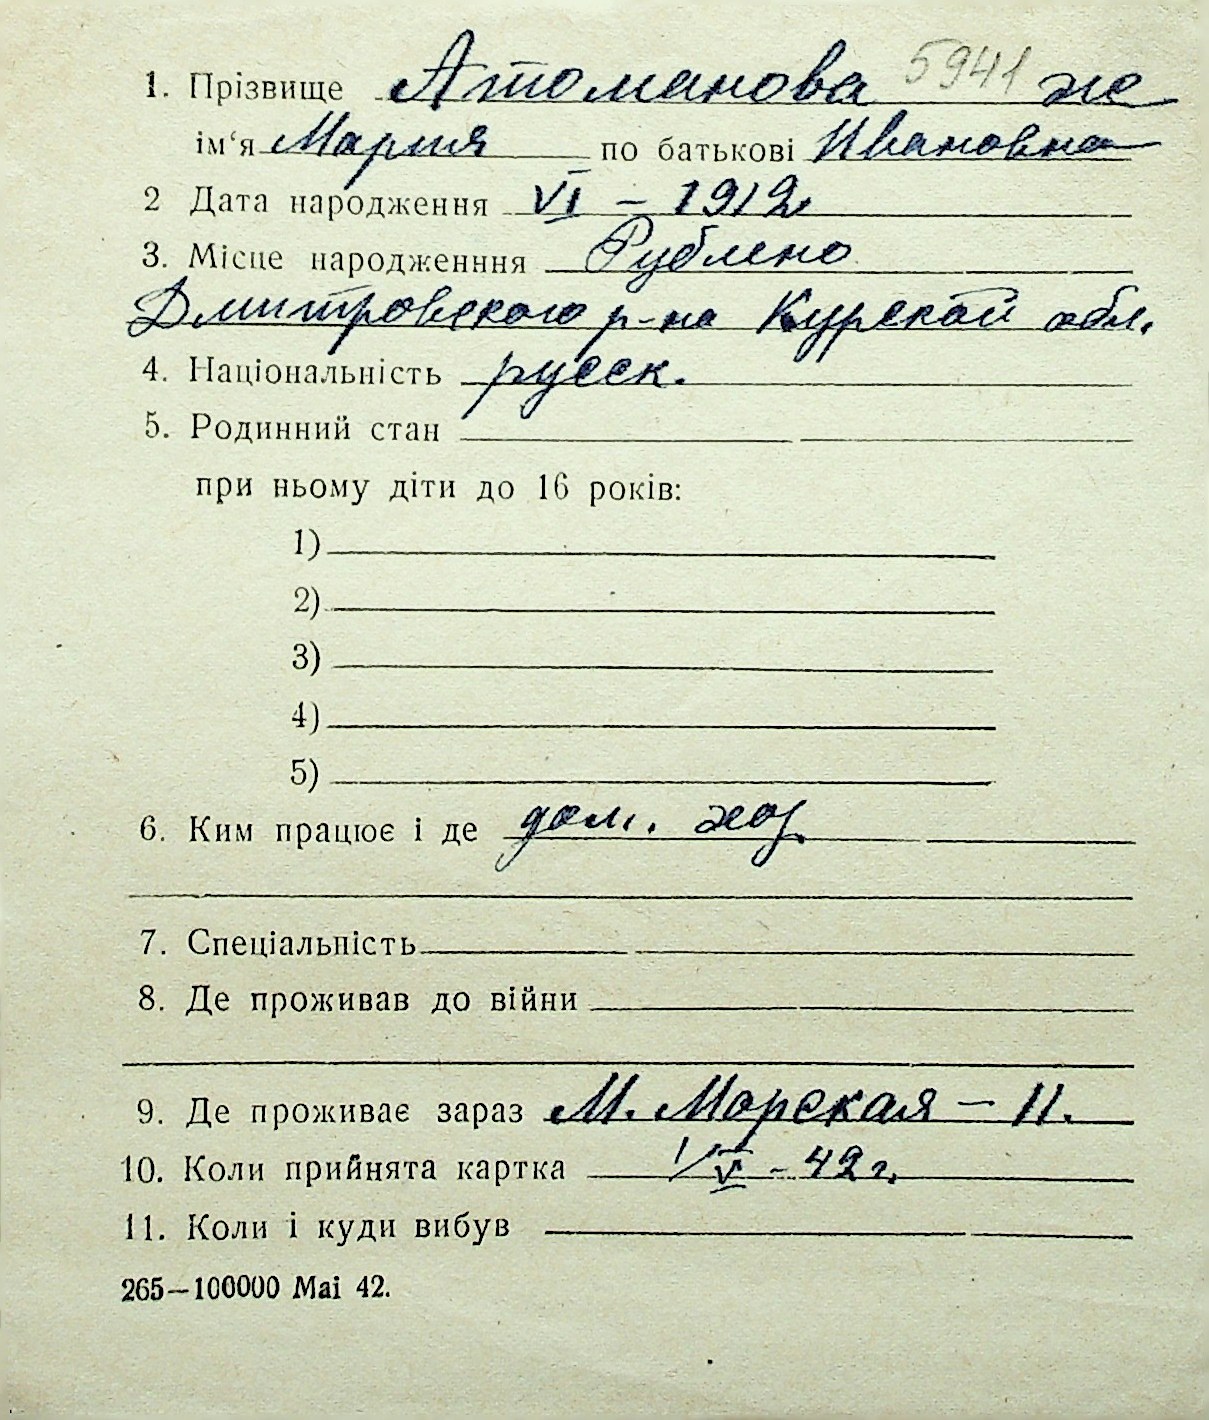 1. Прізвище Атоманова 5941 же
ім‘я Мария по батькові Ивановна
2 Дата народження VI – 1912
3. Місце народженння Рублено
Дмитровского р-на Курской обл.
4. Національність русск.
5. Родинний стан
при ньому діти до 16 років:
1)
2)
3)
4)
5)
6. Ким працює і де дом. хоз.
7. Спеціальність
8. Де проживав до війни
9. Де проживає зараз М. Морская – 11.
10. Коли прийнята картка 1/V – 42 г.
11. Коли і куди вибув
265—100000 Mai 42.